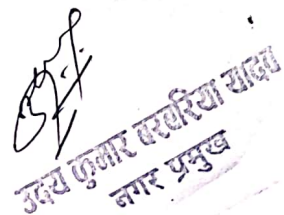 उदय कुमार बरबरिया यादव
नगर प्रमुख